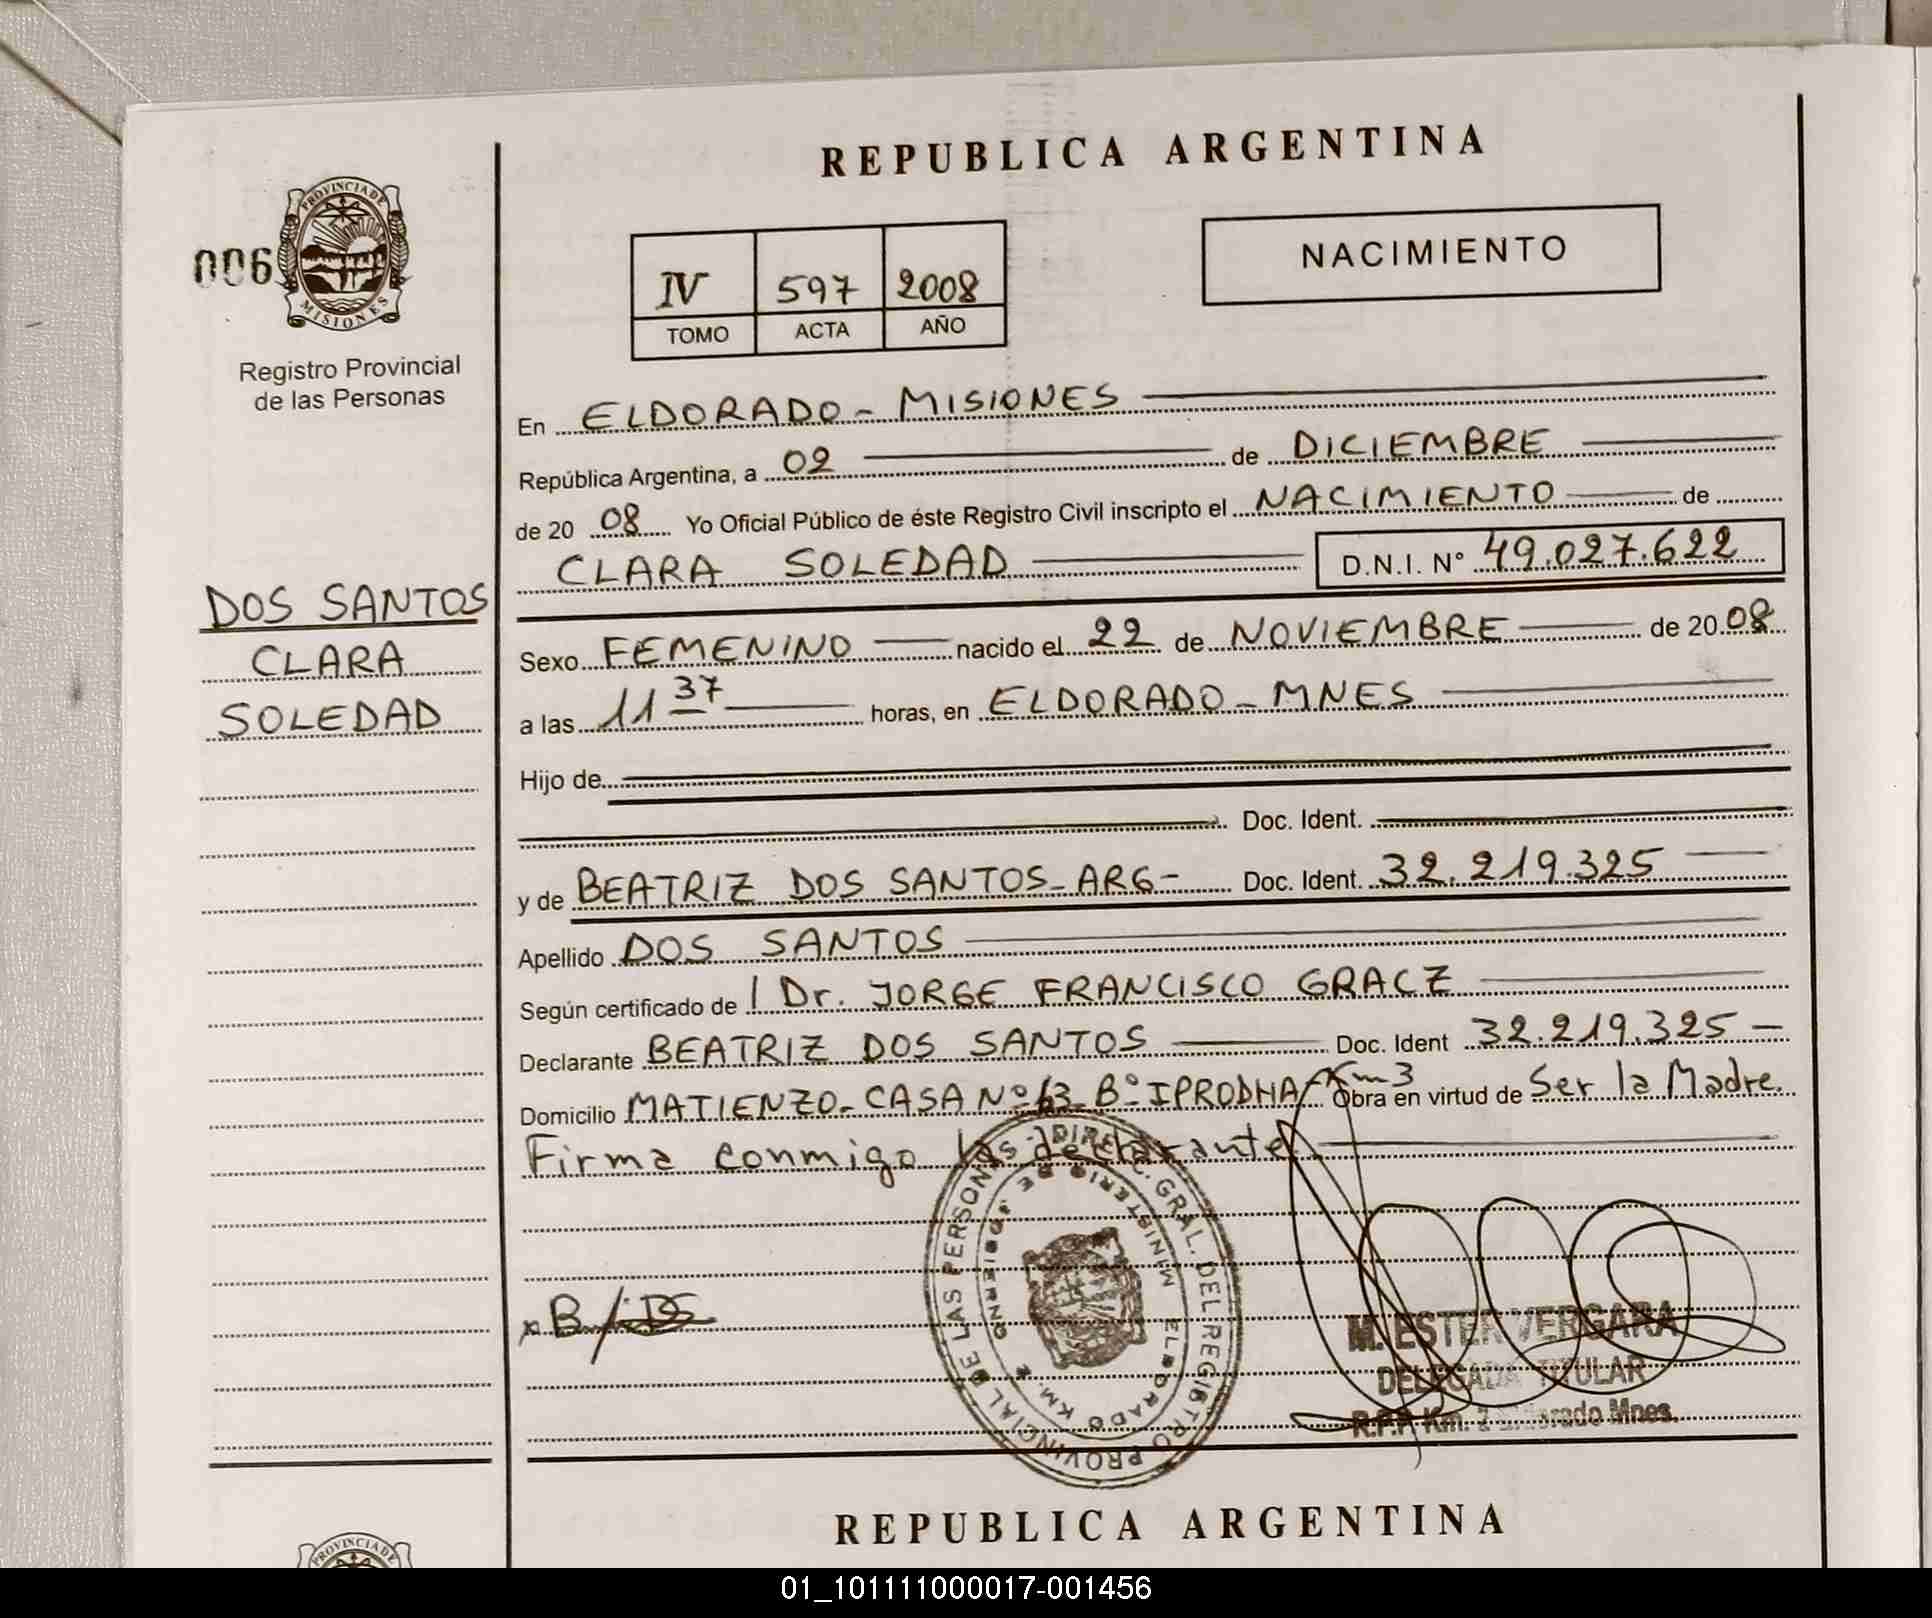 REPUBLICA ARGENTINA
PROVINCIA DE
MISIONES
006
Registro Provincial
de las Personas
IV 597 2008
TOMO ACTA AÑO
NACIMIENTO
En ELDORADO - MISIONES
República Argentina, a 02 de DICIEMBRE
de 20 08 Yo Oficial Público de éste Registro Civil inscripto el NACIMIENTO de
CLARA SOLEDAD D.N.I. N° 49.027.622
DOS SANTOS
CLARA
SOLEDAD
Sexo FEMENINO nacido el 22 de NOVIEMBRE de 20 08
a las 11 37 horas, en ELDORADO - MNES
Hijo de
Doc. Ident.
y de BEATRIZ DOS SANTOS - ARG - Doc. Ident. 32.219.325
Apellido DOS SANTOS
Según certificado de Dr. JORGE FRANCISCO GRACZ
Declarante BEATRIZ DOS SANTOS Doc. Ident 32.219.325 -
Domicilio MATIENZO - CASA Nº 63 - Bº IPRODHA Km 3 Obra en virtud de Ser la Madre.
Firma conmigo declarante
DIREC. GRAL. DEL REGISTRO PROVINCIAL DE LAS PERSONAS
MINISTERIO DE GOBIERNO
ELDORADO KM.
x B DS
M. ESTER VERGARA
DELEGADA TITULAR
R.P.P. Km. 2 Eldorado Mnes.
REPUBLICA ARGENTINA
PROVINCIA DE
01_101111000017-001456